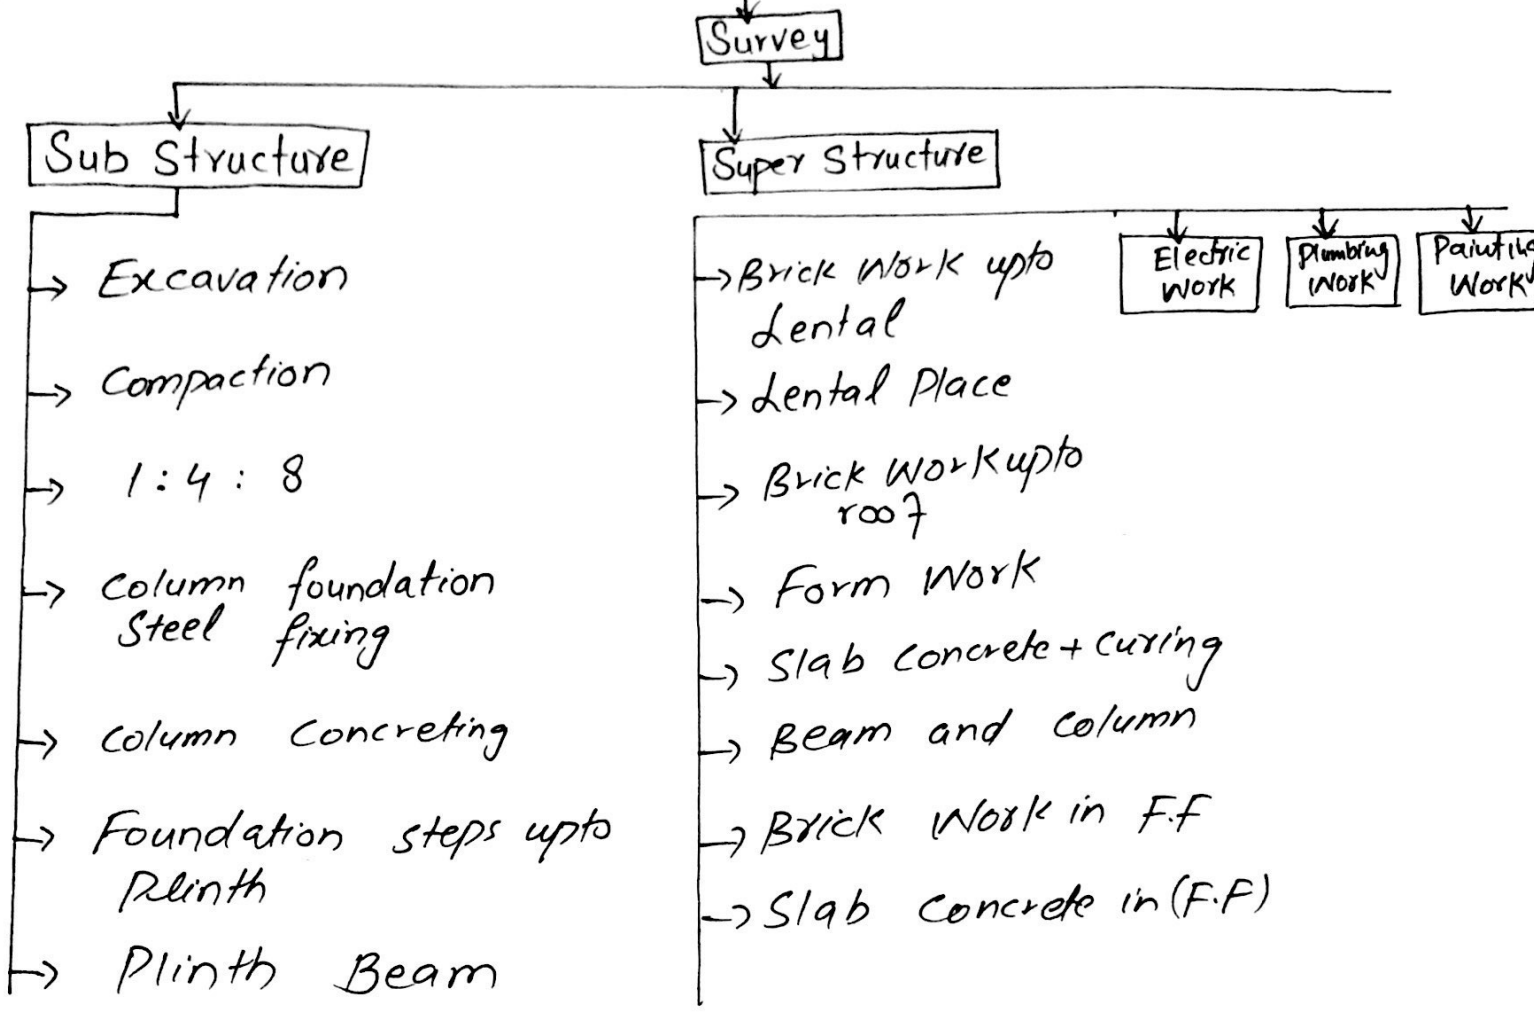 Survey
Sub Structure
Excavation
Compaction
1 : 4 : 8
Column foundation
Steel fixing
Column Concreting
Foundation steps upto
Plinth
Plinth Beam
Super Structure
Brick Work upto
Lental
Lental Place
Brick Work upto
roof
Form Work
Slab Concrete + Curing
Beam and Column
Brick Work in F.F
Slab Concrete in (F.F)
Electric
Work
Plumbing
Work
Painting
Work